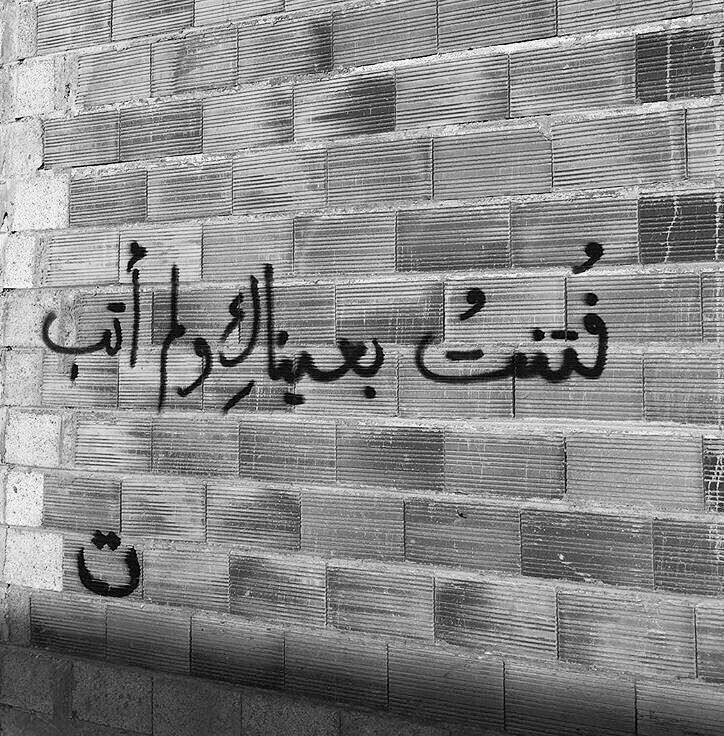 فُتنتُ بعيناكِ ولم أتب
ت